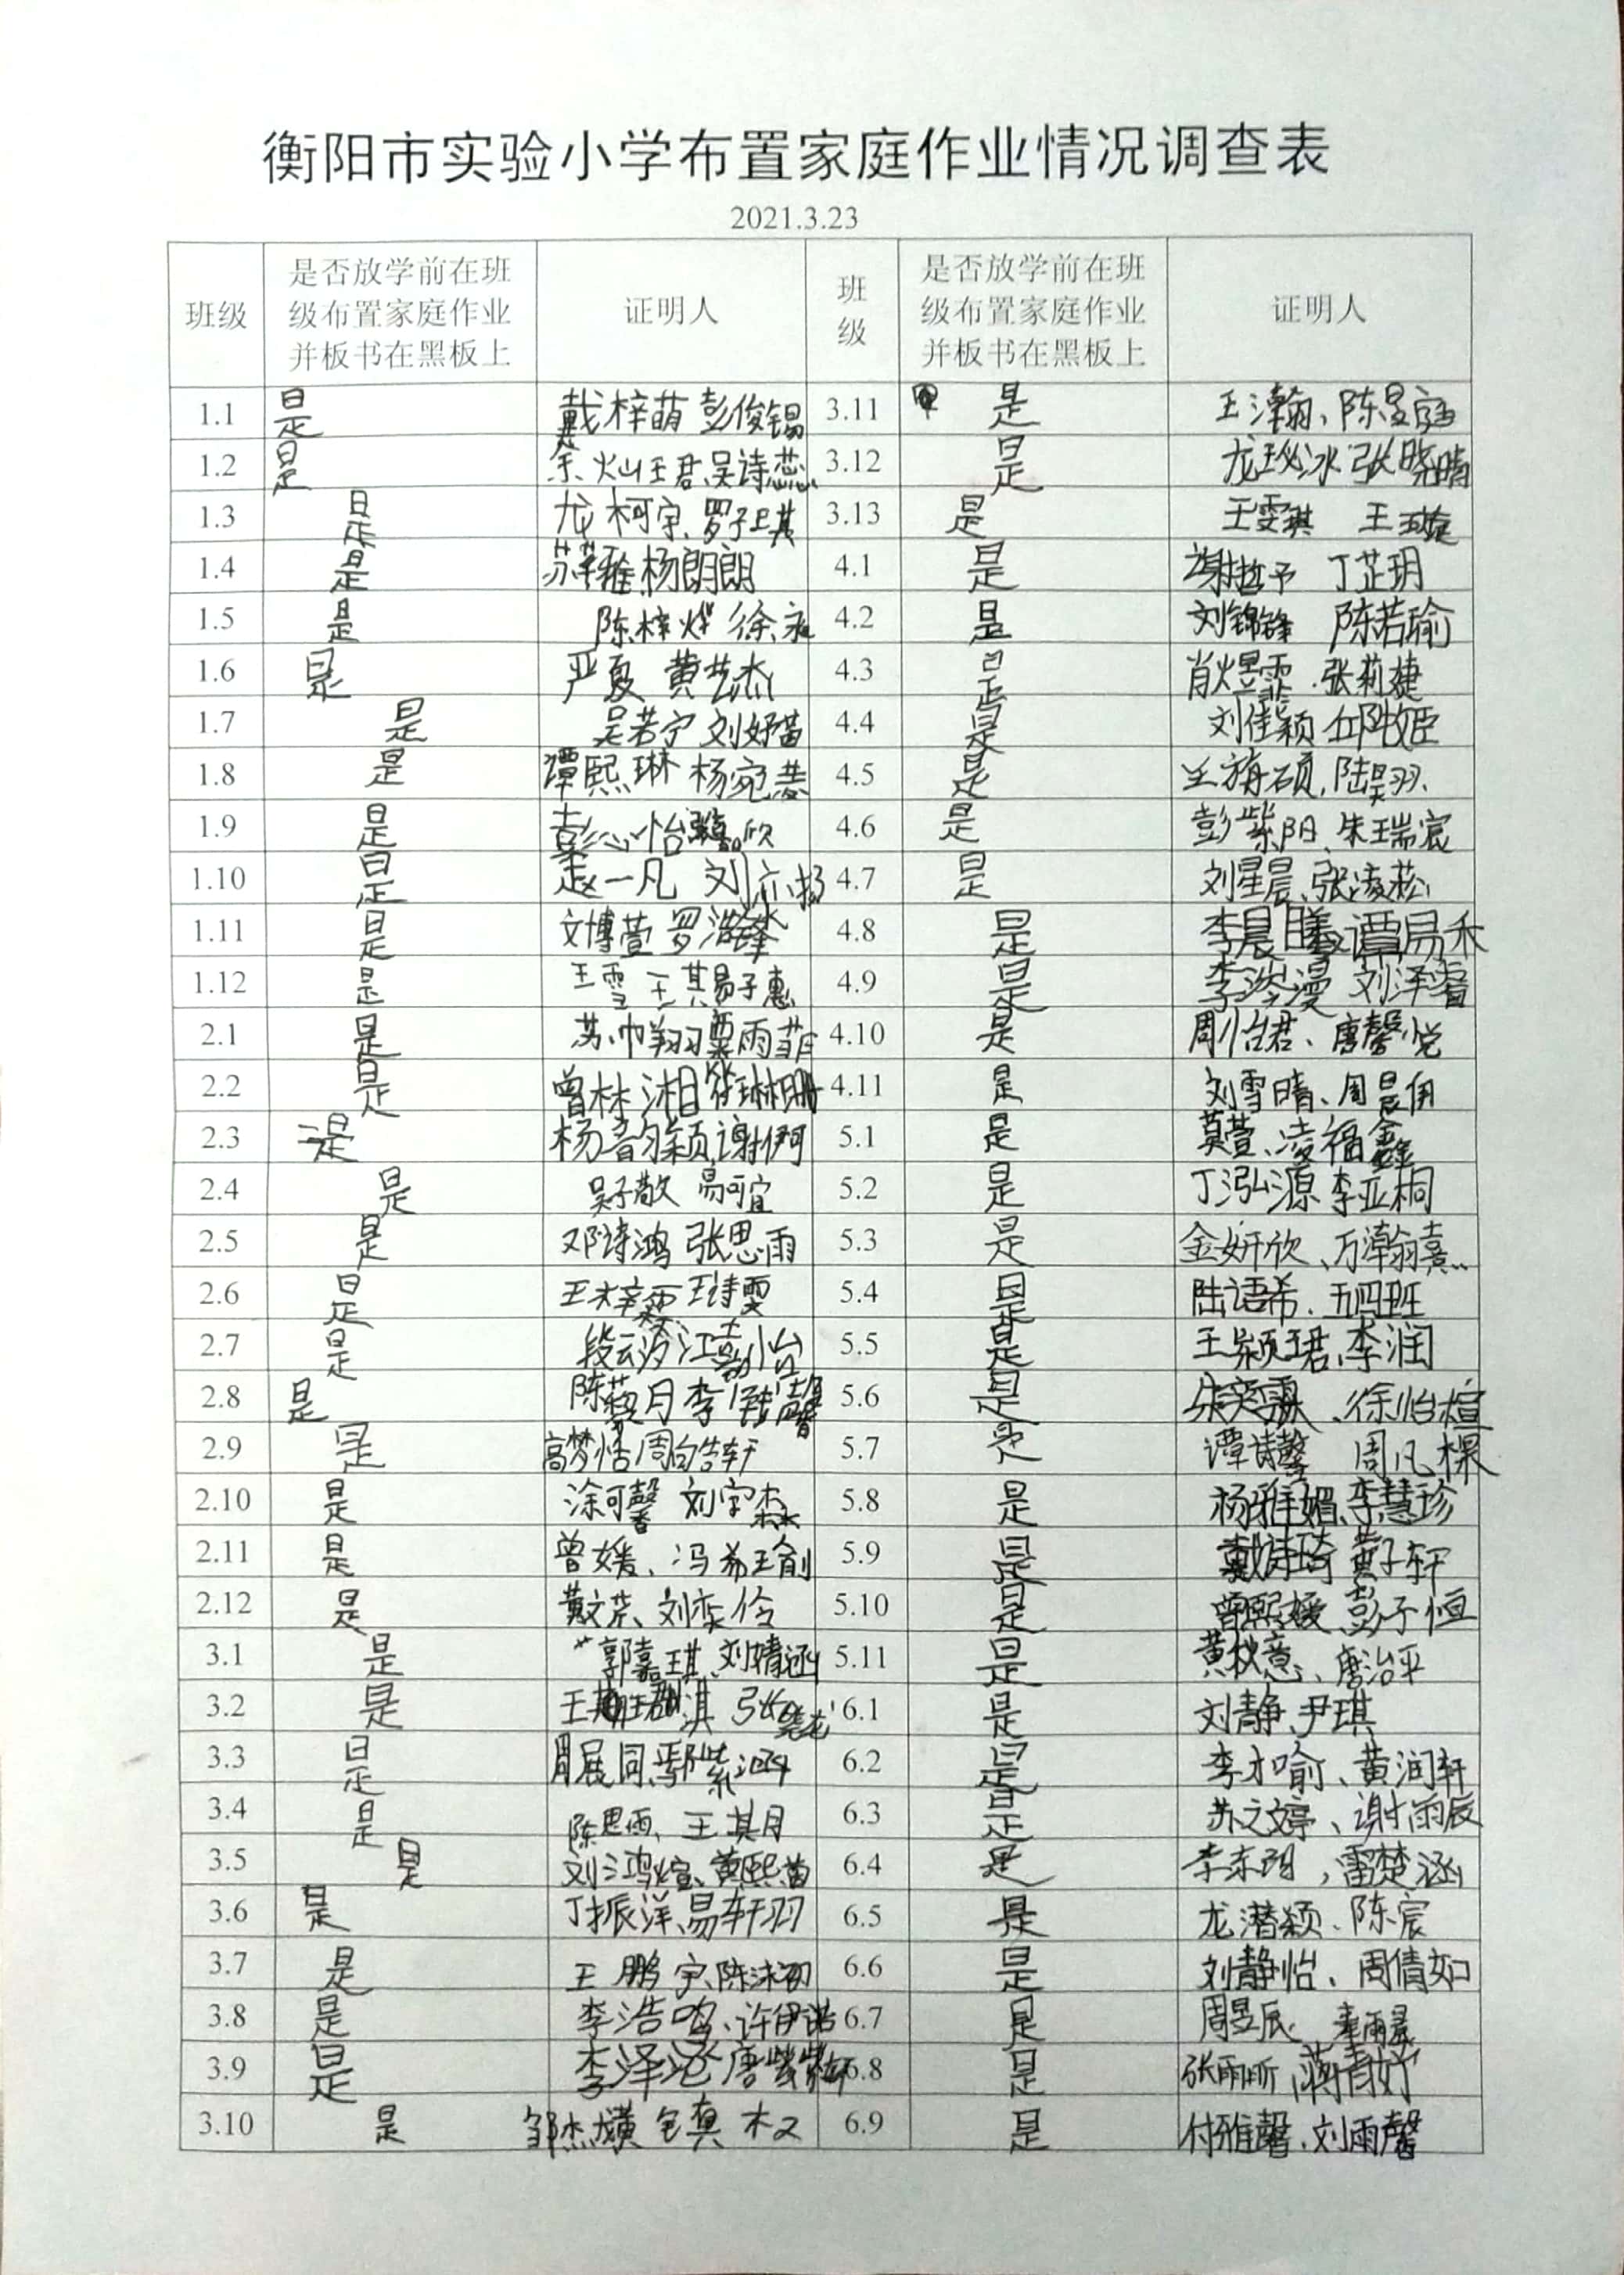 衡阳市实验小学布置家庭作业情况调查表
2021.3.23
班级 是否放学前在班级布置家庭作业并板书在黑板上 证明人 班级 是否放学前在班级布置家庭作业并板书在黑板上 证明人
1.1 是 戴梓萌 彭俊锡 3.11 是 王瀚、陈昱
1.2 是 余灿王君、吴诗蕊 3.12 是 龙珌冰 张晓晴
1.3 是 龙柯宇、罗子琪 3.13 是 王雯琪 王璇
1.4 是 杨朗朗 4.1 是 谢哲予 丁芷玥
1.5 是 陈梓烨 徐永 4.2 是 刘锦锋 陈若瑜
1.6 是 严夏 黄艺杰 4.3 是 肖煜霏、张莉婕
1.7 是 吴若宁 刘妤菡 4.4 是 刘佳颖
1.8 是 谭熙琳 杨宛 4.5 是 陆昊羽
1.9 是 彭心怡 4.6 是 彭紫阳、朱瑞宸
1.10 是 赵一凡 刘亦扬 4.7 是 刘星晨、张凌菘
1.11 是 文博萱 罗浩锋 4.8 是 李晨曦 谭易禾
1.12 是 王雪 王其 易子惠 4.9 是 李 漫 刘泽睿
2.1 是 苏帅翔 粟雨菲 4.10 是 周怡君、唐馨悦
2.2 是 曾林湘 4.11 是 刘雪晴、周晨伊
2.3 是 杨韵颖 谢伊阿 5.1 是 莫萱、凌福鑫
2.4 是 吴子敬 易可宜 5.2 是 丁泓源 李亚桐
2.5 是 邓诗鸿 张思雨 5.3 是 金妍欣、万瀚熹
2.6 是 王梓 王诗雯 5.4 是 陆语希、五四班
2.7 是 段云汐 江嘉怡 5.5 是 王颖君、李润
2.8 是 陈 月 李 馨 5.6 是 徐怡煊
2.9 是 高梦恬 周皓轩 5.7 是 谭诗馨 周凡棵
2.10 是 涂可馨 刘宇 5.8 是 杨雅媚、李慧珍
2.11 是 曾媛、冯希瑜 5.9 是 戴诗琦 黄子轩
2.12 是 黄文芳、刘奕伶 5.10 是 曾熙媛、彭子恒
3.1 是 郭嘉琪、刘婧涵 5.11 是 黄秋意、唐治平
3.2 是 王 淇 张 6.1 是 刘静、尹琪
3.3 是 周展同、鄢紫涵 6.2 是 李才喻、黄润轩
3.4 是 陈思雨、王其月 6.3 是 苏文婷、谢雨辰
3.5 是 刘鸿煊、黄熙茜 6.4 是 李东阳，雷楚涵
3.6 是 丁振洋、易轩羽 6.5 是 龙潜颖、陈宸
3.7 是 王鹏宇、陈沐初 6.6 是 刘静怡、周倩如
3.8 是 李浩鸣、许伊诺 6.7 是 周昱辰、
3.9 是 李泽沧 唐 6.8 是 张雨昕
3.10 是 邹杰 6.9 是 付雅馨、刘雨馨